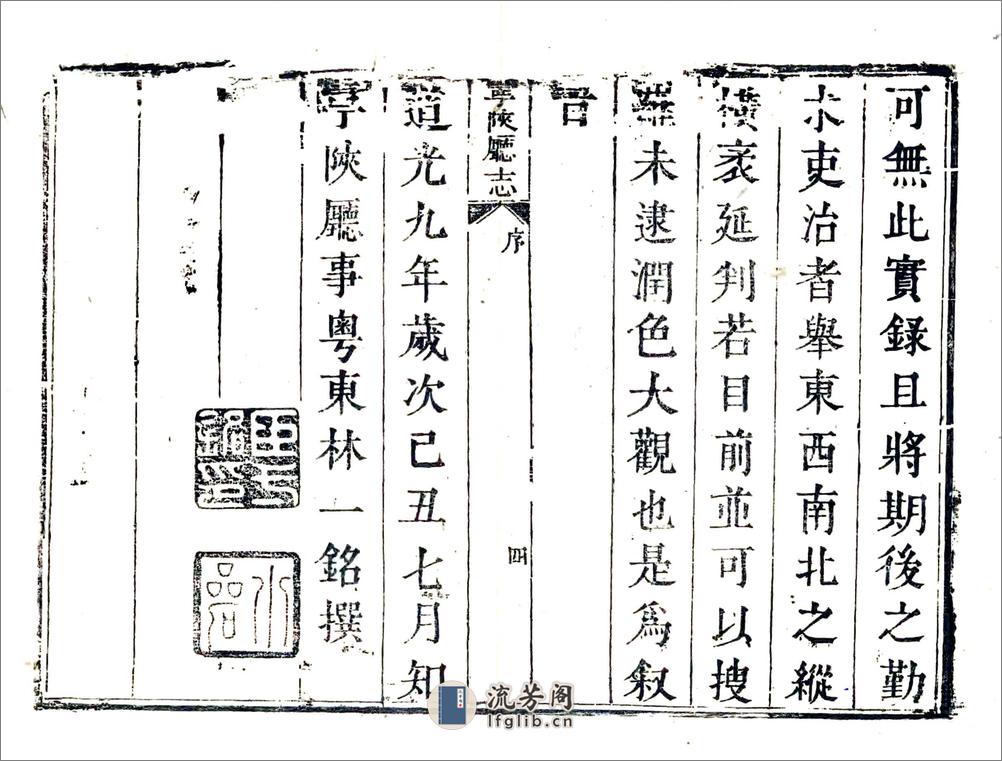 可無此實錄且將期後之勤
求吏治者舉東西南北之縱
橫袤延判若目前並可以搜
羅未逮潤色大觀也是爲叙
旹
寧陝廳志
序
四
道光九年歲次己丑七月知
寧陝廳事粵東林一銘撰
流芳阁
lfglib.cn